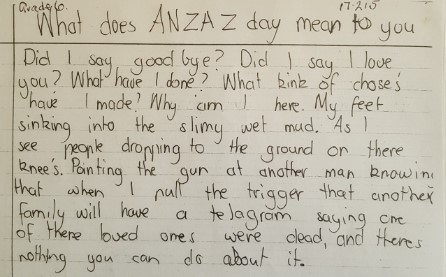 Grade 6. 17.2.15
What does ANZAZ day mean to you
Did I say good bye? Did I say I love
you? What have I done? What kink of choses
have I made? Why am I here. My feet
sinking into the slimy wet mud. As I
see people dropping to the ground on there
knee's. Pointing the gun at another man knowing
that when I pull the trigger that another
family will have a telagram saying one
of there loved ones were dead, and theres
nothing you can do about it.